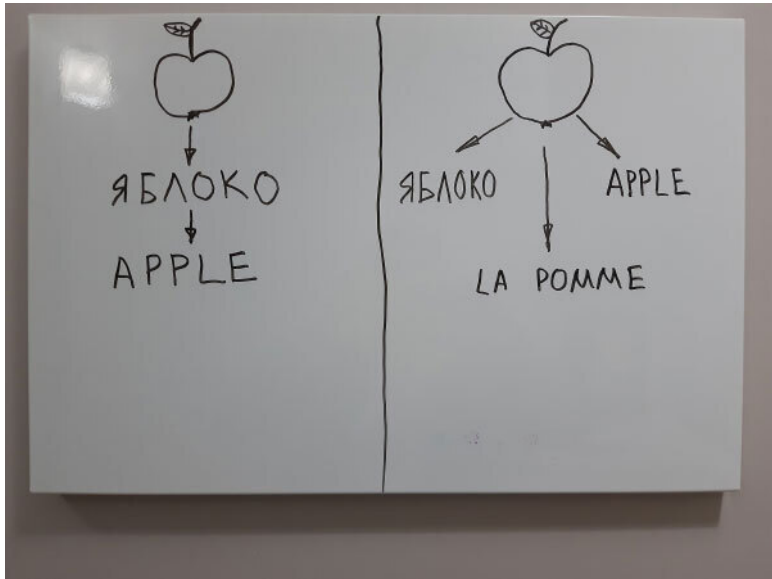 ЯБЛОКО
APPLE
ЯБЛОКО
APPLE
LA POMME